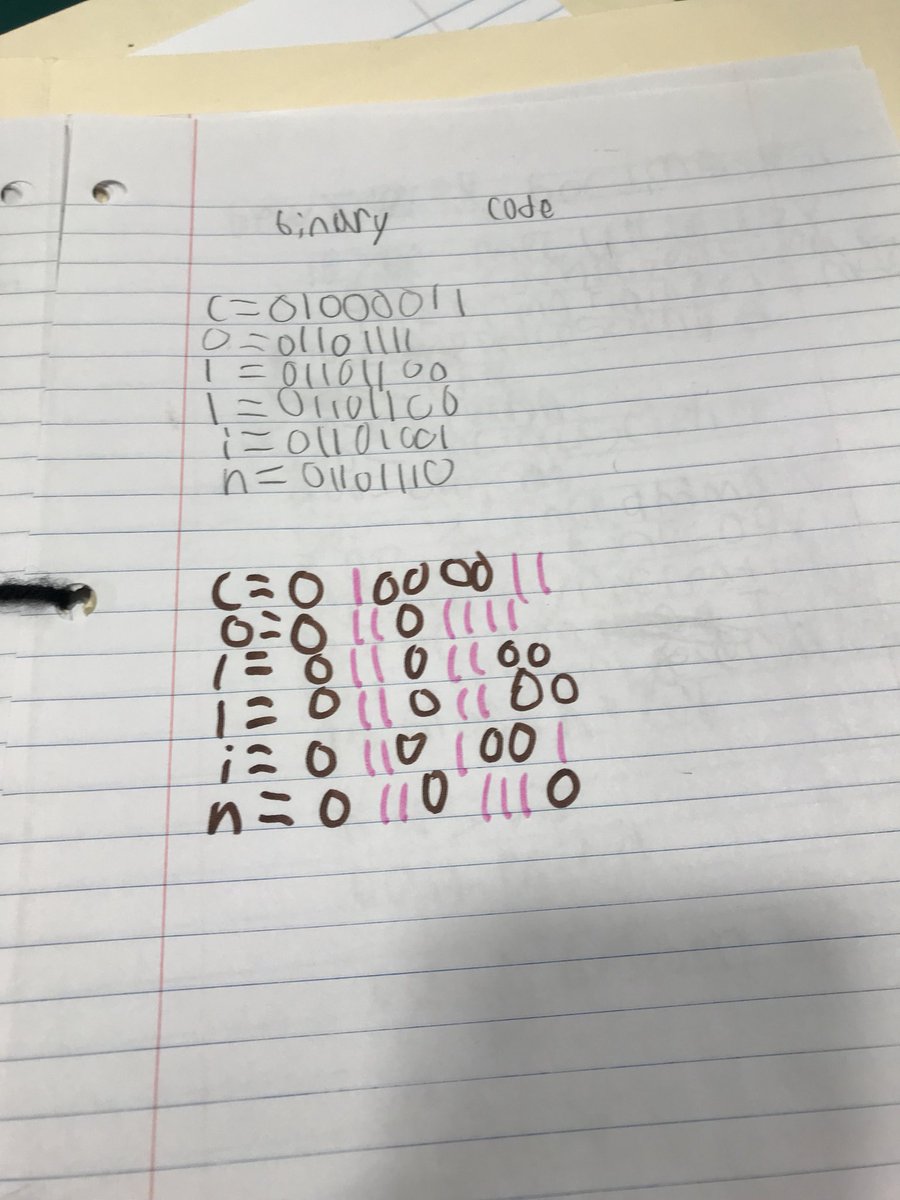 binary code
C=01000011
o=01101111
l=01101100
l=01101100
i=01101001
n=01101110
C=01000011
o=01101111
l=01101100
l=01101100
i=01101001
n=01101110